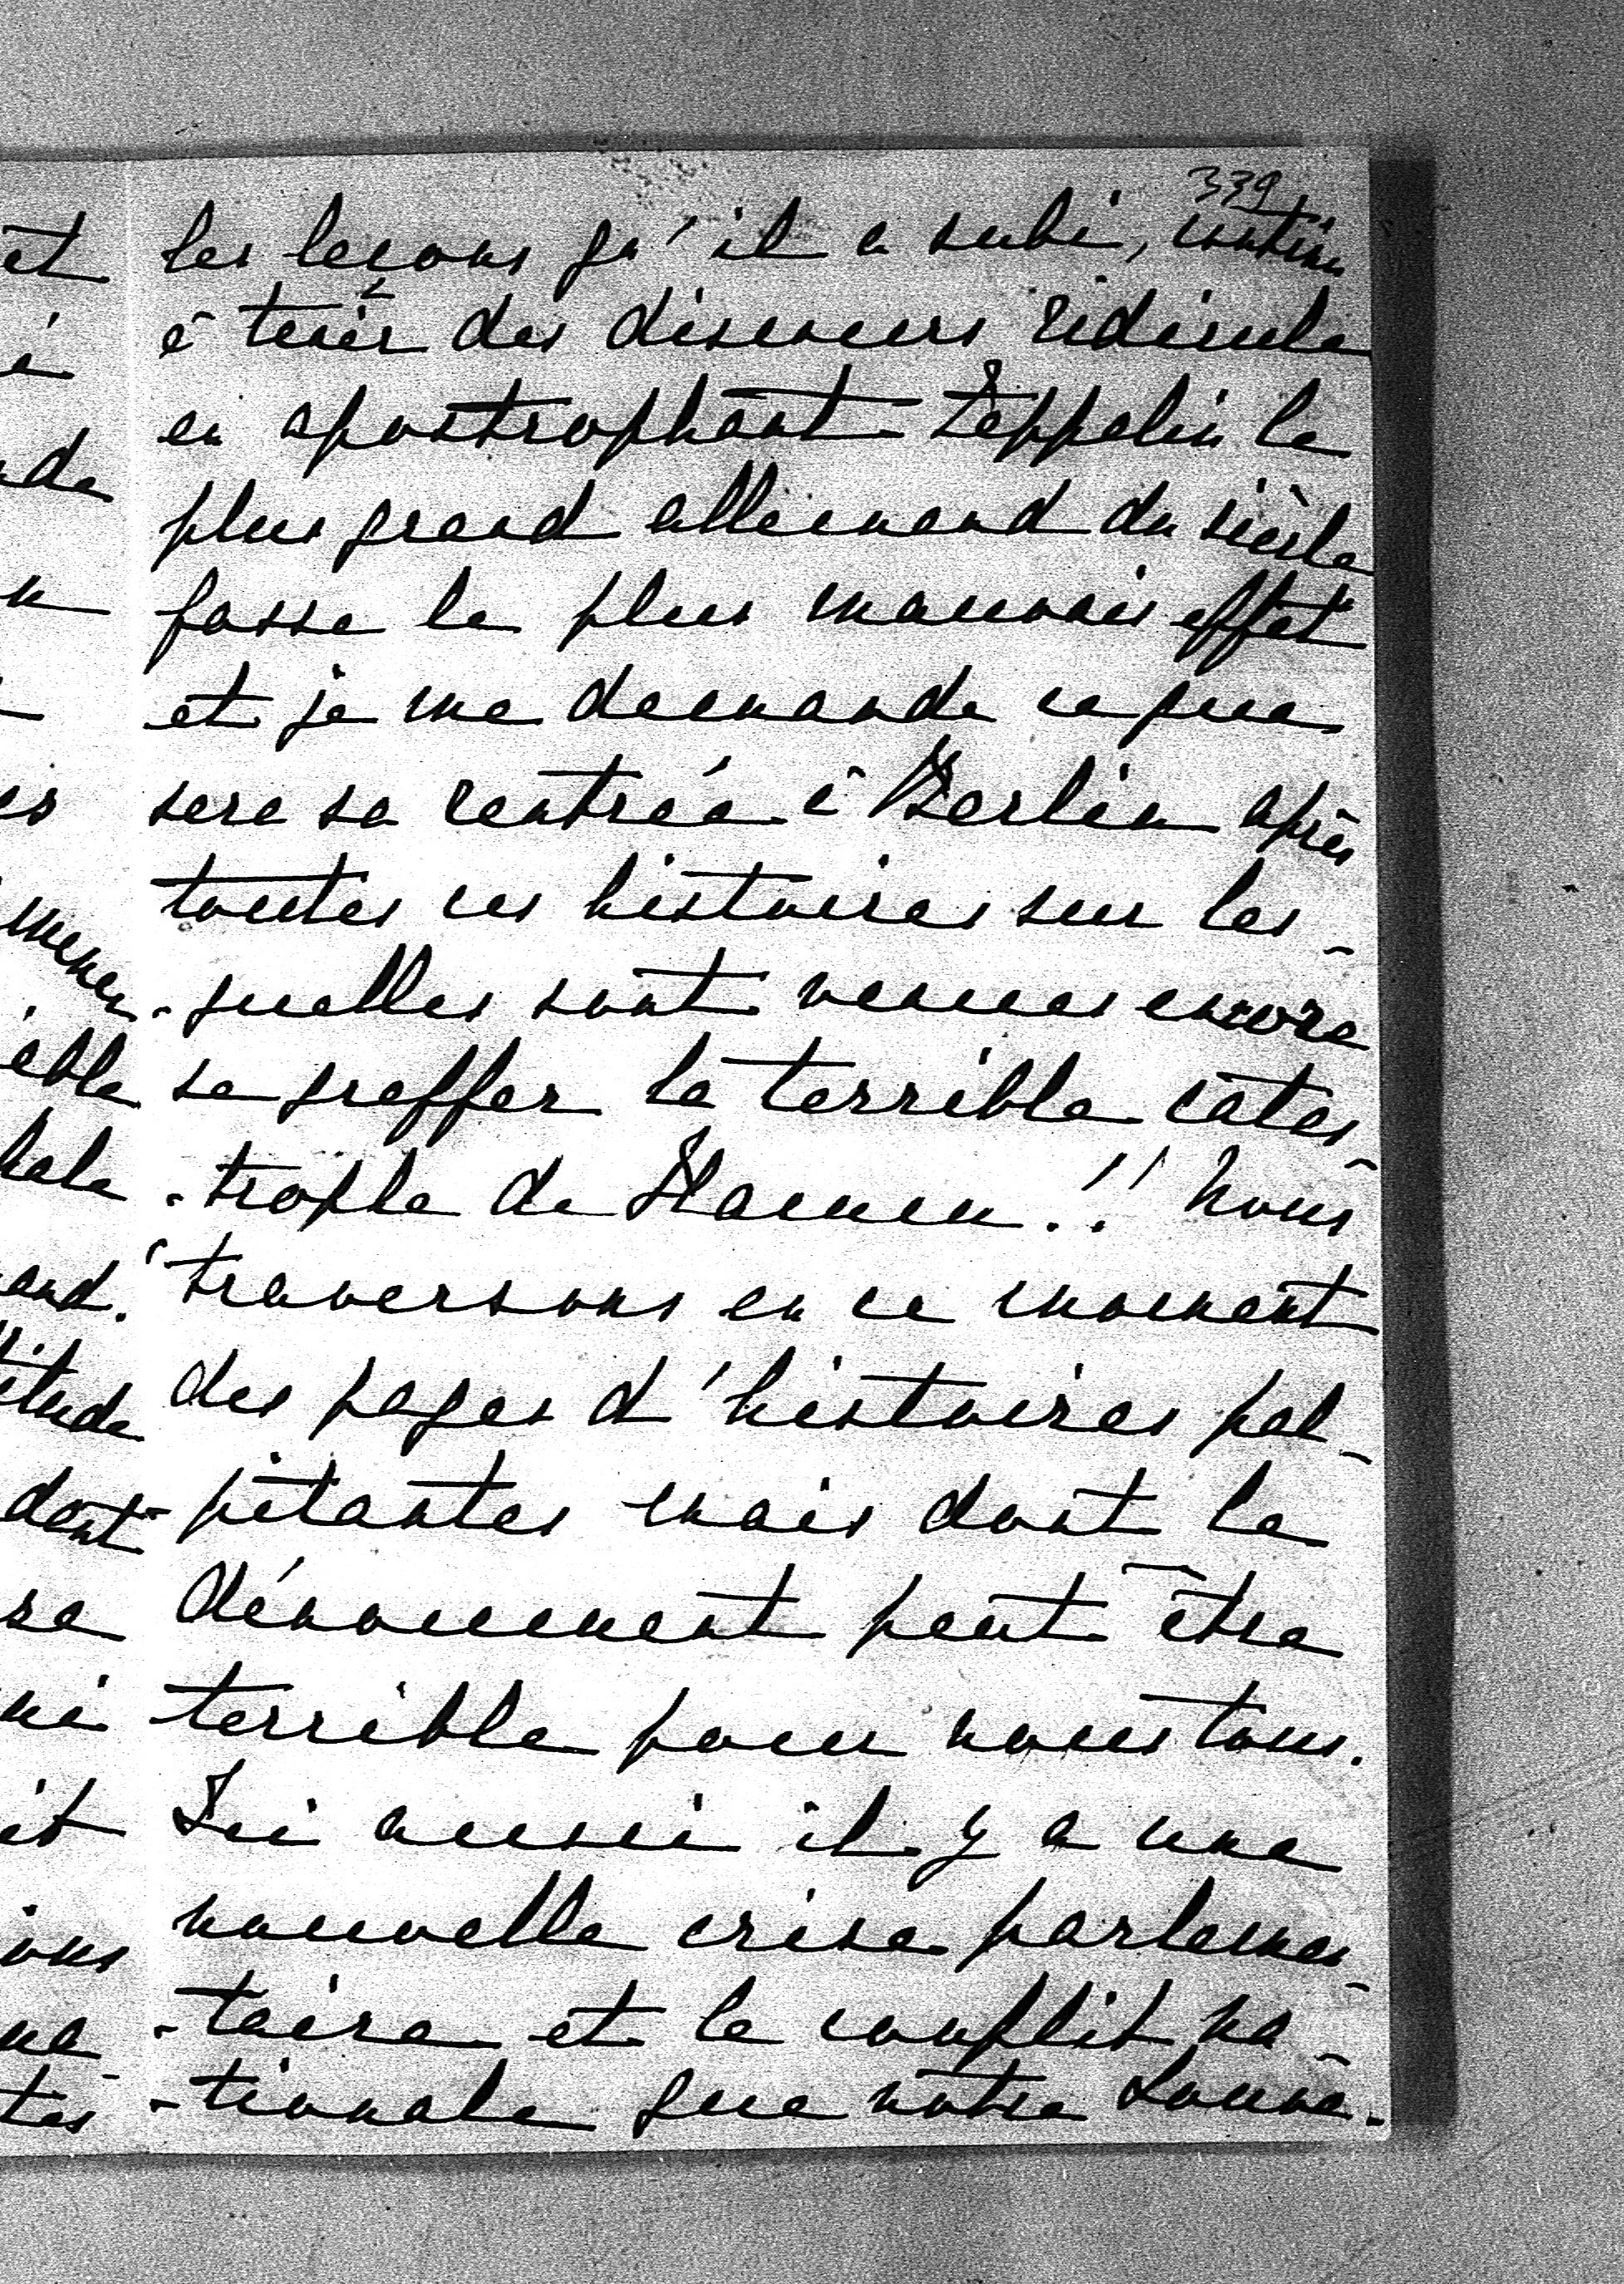 339
les leçons qu'il a subi, continu
à tenir des discours ridicule
en apostrophant Zeppelin le
plus grand allemand du siècle
fasse le plus mauvais effet
et je me demande ce que
sera sa rentrée à Berlin après
toutes ces histoires sur les-
-quelles sont venues encore
se greffer la terrible catas-
-trophe de Hamm!! Nous
traversons en ce moment
des pages d'histoires pal-
pitantes mais dont le
dénouement peut être
terrible pour nous tous.
Ici aussi il y a une
nouvelle crise parlemen-
-taire et le conflit na-
-tionale que notre Souve-